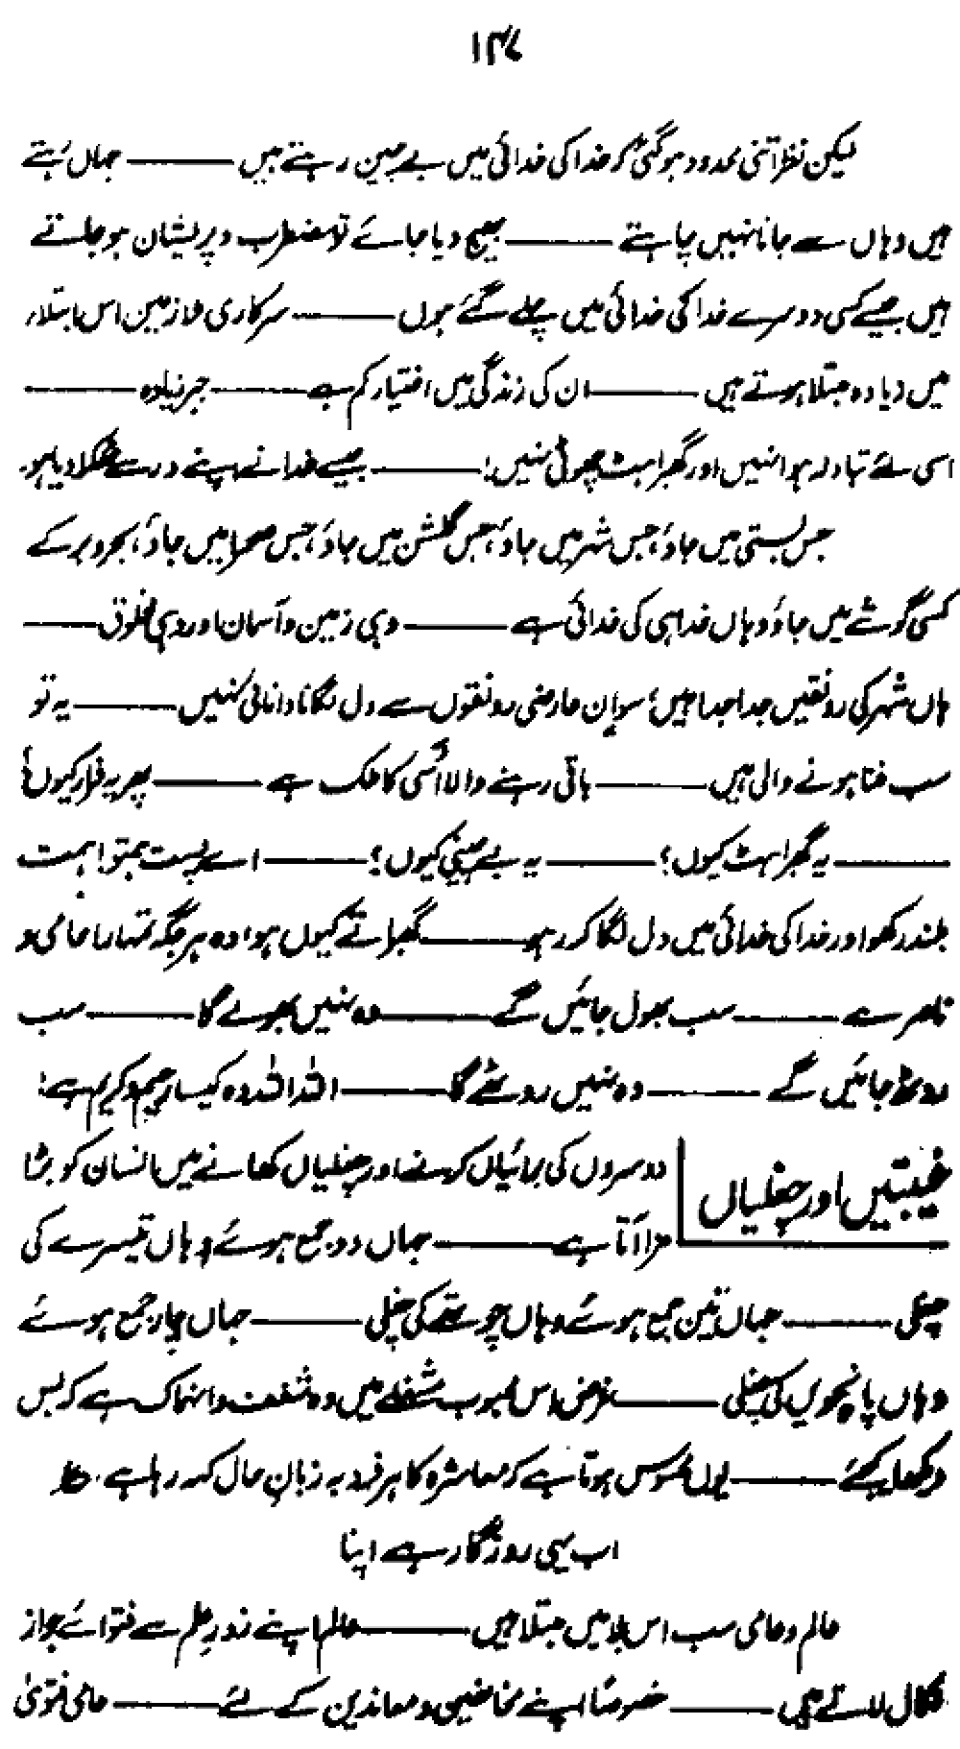 ۱۴۷
لیکن نظر اتنی محدود ہوگئی کہ خدا کی خدائی میں بے چین رہتے ہیں ——— جہاں رہتے
ہیں وہاں سے جانا نہیں چاہتے ——— بھیج دیا جائے تو مضطرب و پریشان ہو جاتے
ہیں جیسے کسی دوسرے خدا کی خدائی میں چلے گئے ہوں ——— سرکاری ملازمین اس ابتلاء
میں زیادہ مبتلا ہوتے ہیں ——— ان کی زندگی میں اختیار کم ہے ——— جبر زیادہ ———
اسی لئے تبادلہ ہوا نہیں اور گھبراہٹ چھوٹی نہیں؛ ——— جیسے خدا نے اپنے در سے نکلا دیا ہو۔
جس بستی میں جاؤ، جس شہر میں جاؤ، جس گلشن میں جاؤ، جس صحرا میں جاؤ، بحر و بر کے
کسی گوشے میں جاؤ وہاں خدا ہی کی خدائی ہے ——— وہی زمین و آسمان اور وہی مخلوق ———
ہاں شہر کی رونقیں جدا جدا ہیں؛ سو اِن عارضی رونقوں سے دل لگانا دانائی نہیں ——— یہ تو
سب فنا ہونے والی ہیں ——— باقی رہنے والا اُسی کا ملک ہے ——— پھر یہ فرار کیوں؟
——— یہ گھبراہٹ کیوں؟ ——— یہ بے چینی کیوں؟ ——— اے پست ہمتو! ہمت
بلند رکھو اور خدا کی خدائی میں دل لگا کر رہو ——— گھبراتے کیوں ہو! وہ ہر جگہ تمہارا حامی و
ناصر ہے ——— سب بھول جائیں گے ——— وہ نہیں بھولے گا ——— سب
روٹھ جائیں گے ——— وہ نہیں روٹھے گا ——— اللہ اللہ وہ کیسا رحیم و کریم ہے!
غیبتیں اور چغلیاں
دوسروں کی برائیاں کرنے اور چغلیاں کھانے میں انسان کو بڑا
مزا آتا ہے ——— جہاں دو جمع ہوئے وہاں تیسرے کی
چغلی ——— جہاں تین جمع ہوئے وہاں چوتھے کی چغلی ——— جہاں چار جمع ہوئے
وہاں پانچویں کی چغلی ——— غرض اس محبوب مشغلے میں وہ شغف و انہماک ہے کہ بس
دیکھا کیجئے ——— یوں محسوس ہوتا ہے کہ معاشرہ کا ہر فرد بہ زبانِ حال کہہ رہا ہے۔ ع
اب یہی روزگار ہے اپنا
عالم و عامی سب اس بلا میں مبتلا ہیں ——— عالم اپنے زورِ علم سے فتوائے جواز
نکال لاتے ہیں ——— خصوصًا اپنے مخالفین و معاندین کے لئے ——— عامی فتویٰ